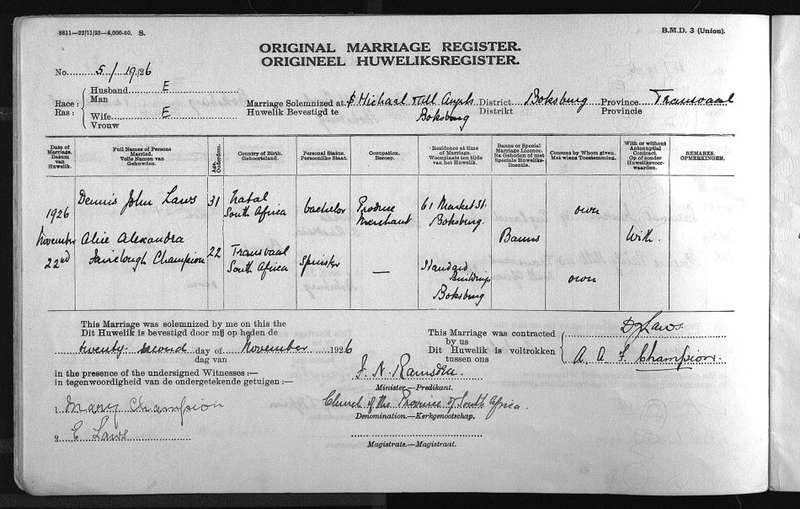 8811—22/11/23—4,000-50. S.
B.M.D. 3 (Union).
ORIGINAL MARRIAGE REGISTER.
ORIGINEEL HUWELIKSREGISTER.
No. 5/1926
Race: Husband E
Ras: Man
Wife E
Vrouw
Marriage Solemnized at St Michael & All Angels District Boksburg Province Transvaal
Huwelik Bevestigd te Boksburg Distrikt Provincie
Date of Marriage. Datum van Huwelik.
Full Names of Persons Married. Volle Namen van Gehuwden.
Age. Ouderdom.
Country of Birth. Geboorteland.
Personal Status. Persoonlike Staat.
Occupation. Beroep.
Residence at time of Marriage. Woonplaats ten tijde van het Huwelik.
Banns or Special Marriage Licence. Na Geboden of met Speciale Huweliks-licentie.
Consent by Whom given. Met wiens Toestemming.
With or without Antenuptial Contract. Op of zonder Huweliksvoorwaarden.
REMARKS. OPMERKINGEN.
1926 November 22nd
Dennis John Laws 31 Natal South Africa bachelor Produce Merchant 61 Market St. Boksburg. own
Alice Alexandra Fairclough Champion 22 Transvaal South Africa Spinster — Standard Buildings Boksburg own
Banns With.
This Marriage was solemnized by me on this the
Dit Huwelik is bevestigd door mij op heden de
twenty second day of November 1926
dag van
in the presence of the undersigned Witnesses :—
in tegenwoordigheid van de ondergetekende getuigen :—
1. Mary Champion
2. E Laws
J. N. Ramsden
Minister.—Predikant.
Church of the Province of South Africa.
Denomination.—Kerkgenootschap.
Magistrate.—Magistraat.
This Marriage was contracted
by us
Dit Huwelik is voltrokken
tussen ons
DJ Laws.
A. A. F. Champion.